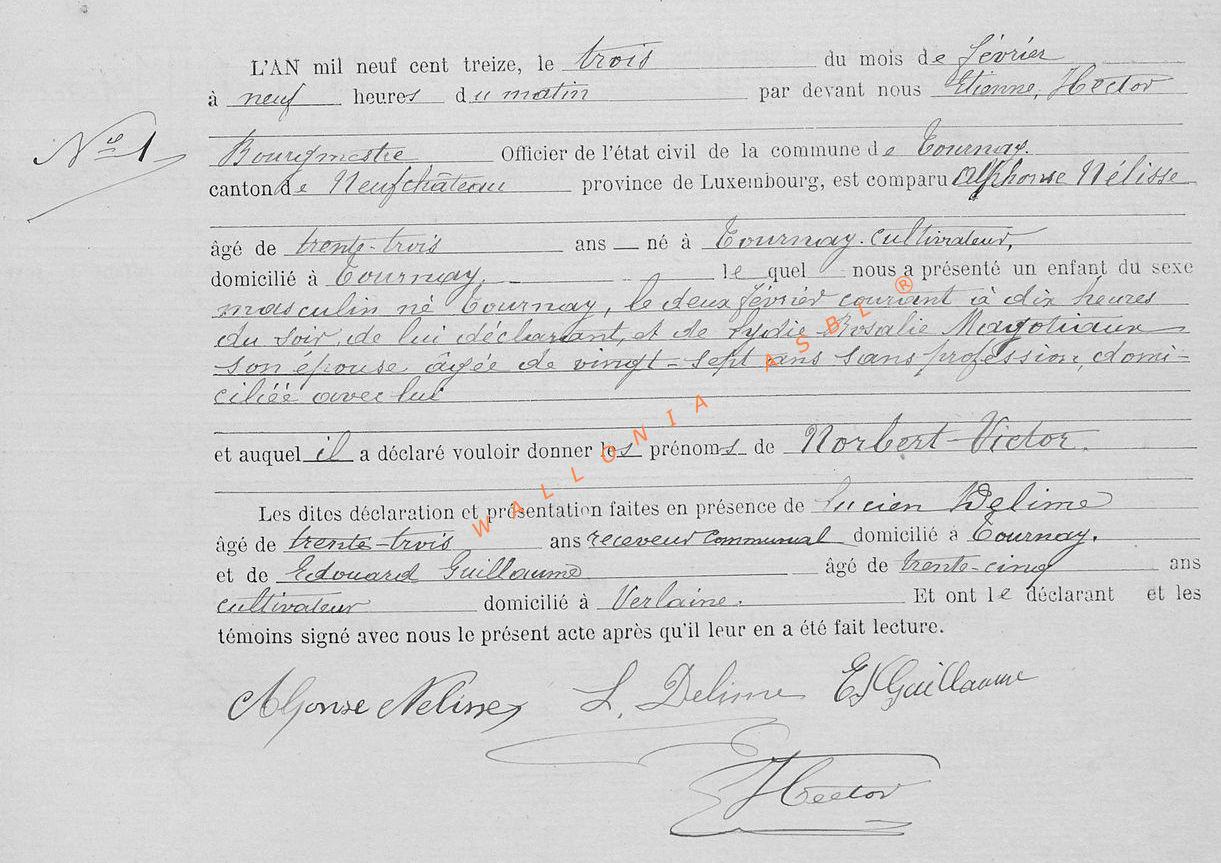 L'AN mil neuf cent treize, le trois du mois de février
à neuf heures du matin par devant nous Etienne, Hector
N° 1
Bourgmestre Officier de l'état civil de la commune de Tournay.
canton de Neufchâteau province de Luxembourg, est comparu Alphonse Nélisse
âgé de trente-trois ans né à Tournay. cultivateur,
domicilié à Tournay, le quel nous a présenté un enfant du sexe
masculin né Tournay, le deux février courant à dix heures
du soir, de lui déclarant, et de Lydie Rosalie Magotiaux
son épouse âgée de vingt-sept ans sans profession, domi-
ciliéé avec lui
et auquel il a déclaré vouloir donner les prénoms de Norbert-Victor.
Les dites déclaration et présentation faites en présence de Lucien Delime
âgé de trente-trois ans receveur communal domicilié à Tournay.
et de Edouard Guillaume âgé de trente-cinq ans
cultivateur domicilié à Verlaine. Et ont le déclarant et les
témoins signé avec nous le présent acte après qu'il leur en a été fait lecture.
Alfonse Nelisse L. Delime E Guillaume
E Hector
WALLONIA ASBL ®